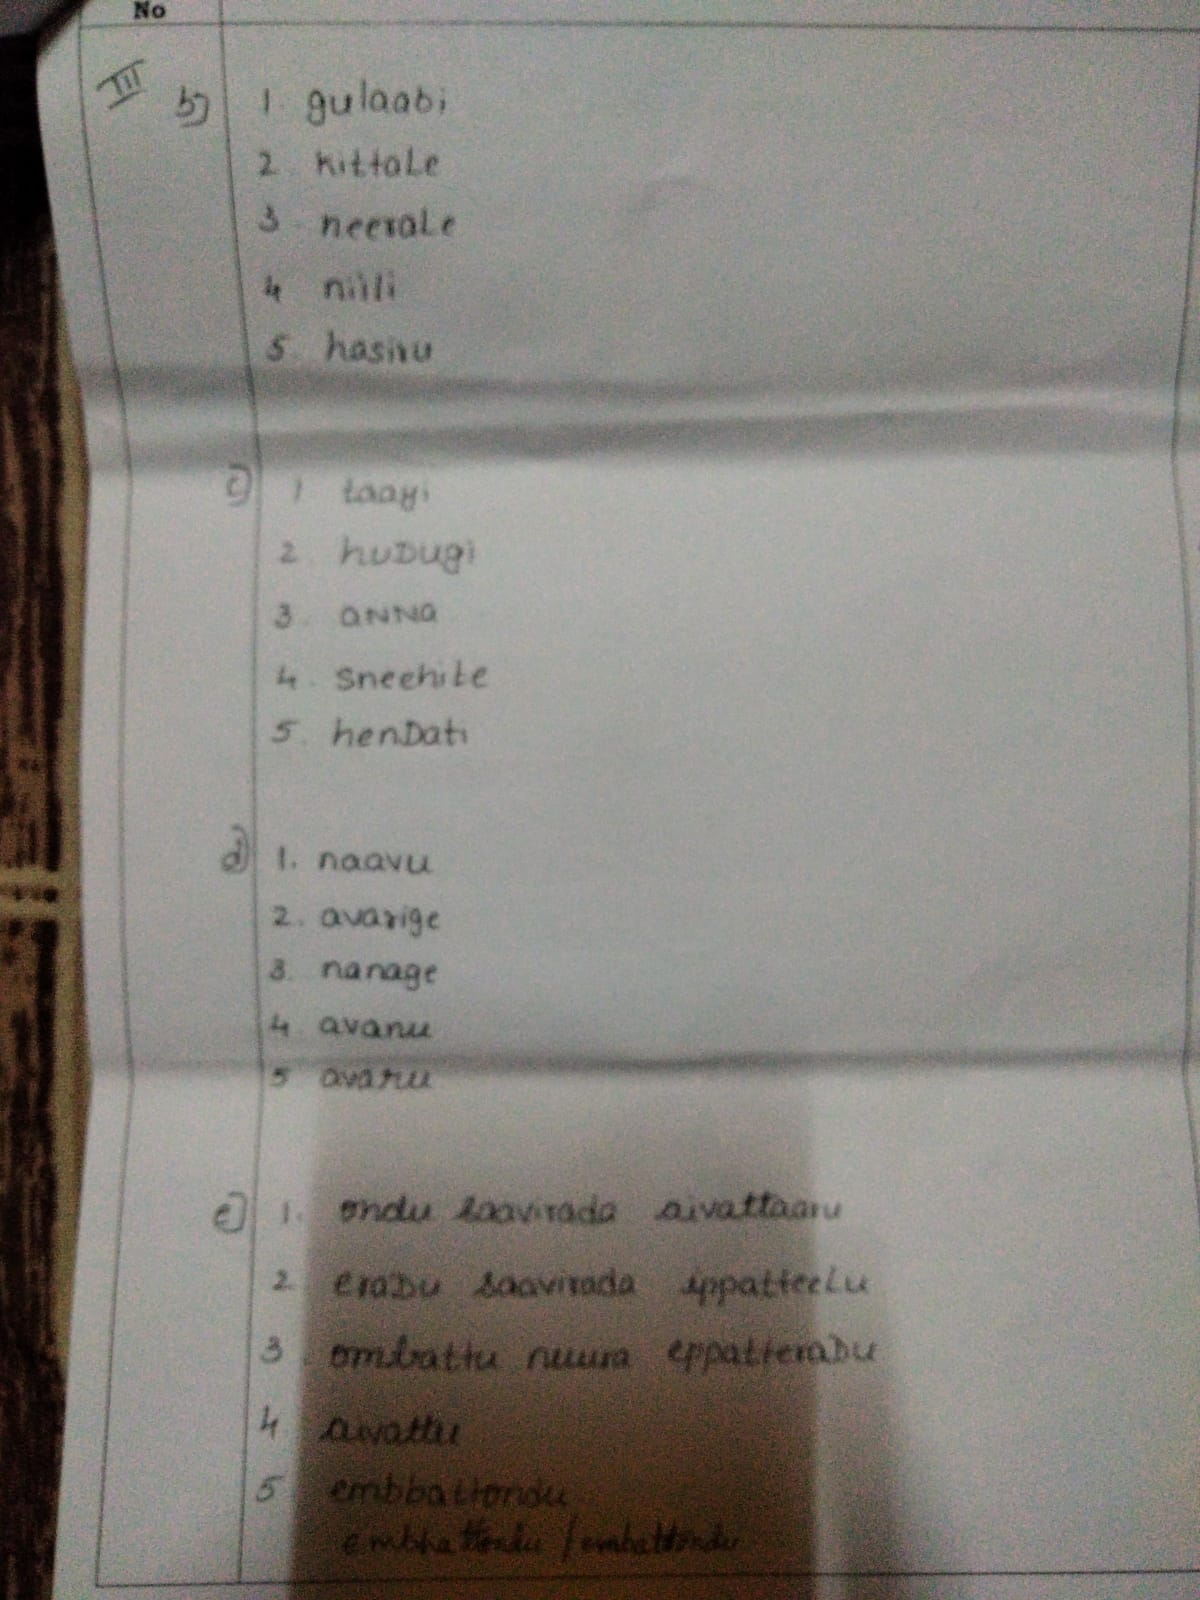 No
III b) 1. gulaabi
2. kittaLe
3. neeraLe
4 niili
5. hasiru
c) 1 taayi
2. huDugi
3. aNNa
4. sneehite
5. henDati
d) 1. naavu
2. avarige
3. nanage
4. avanu
5 avaru
e) 1. ondu saavirada aivattaaru
2 eraDu saavirada ippatteeLu
3. ombattu nuura eppatteraDu
4 aivattu
5 embbattondu
embhattondu / embattondu